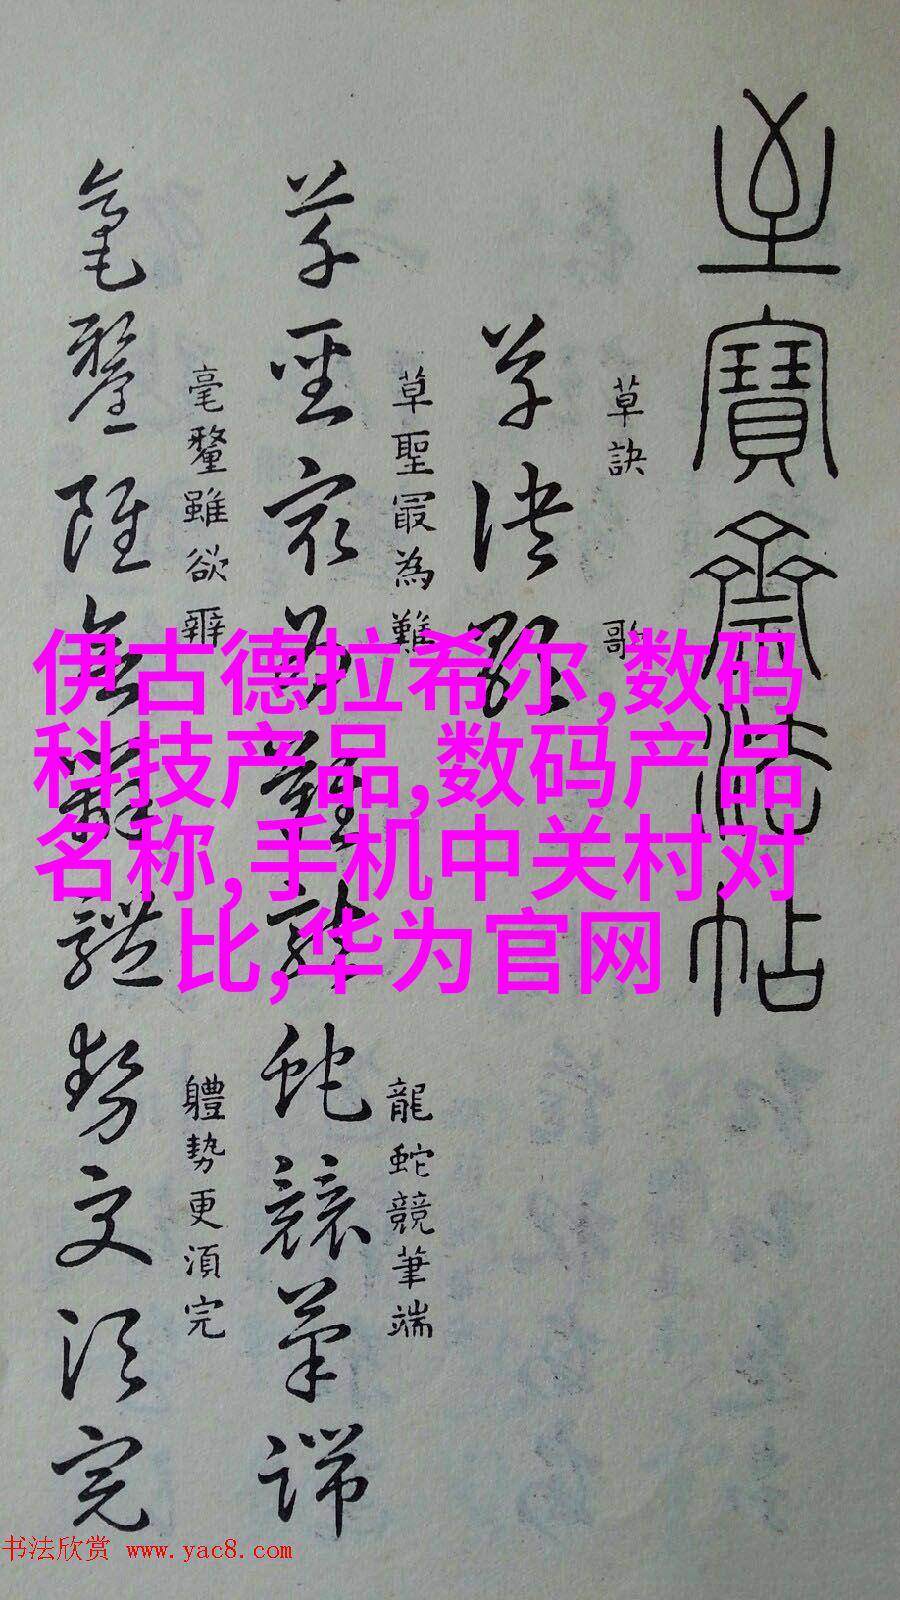 至寶齋法帖
草訣歌
草訣歌
草聖最為難
龍蛇競筆端
毫釐雖欲辨
體勢更須完
伊古德拉希尔,数码
科技产品,数码产品
名称,手机中关村对
比,华为官网
书法欣赏 www.yac8.com